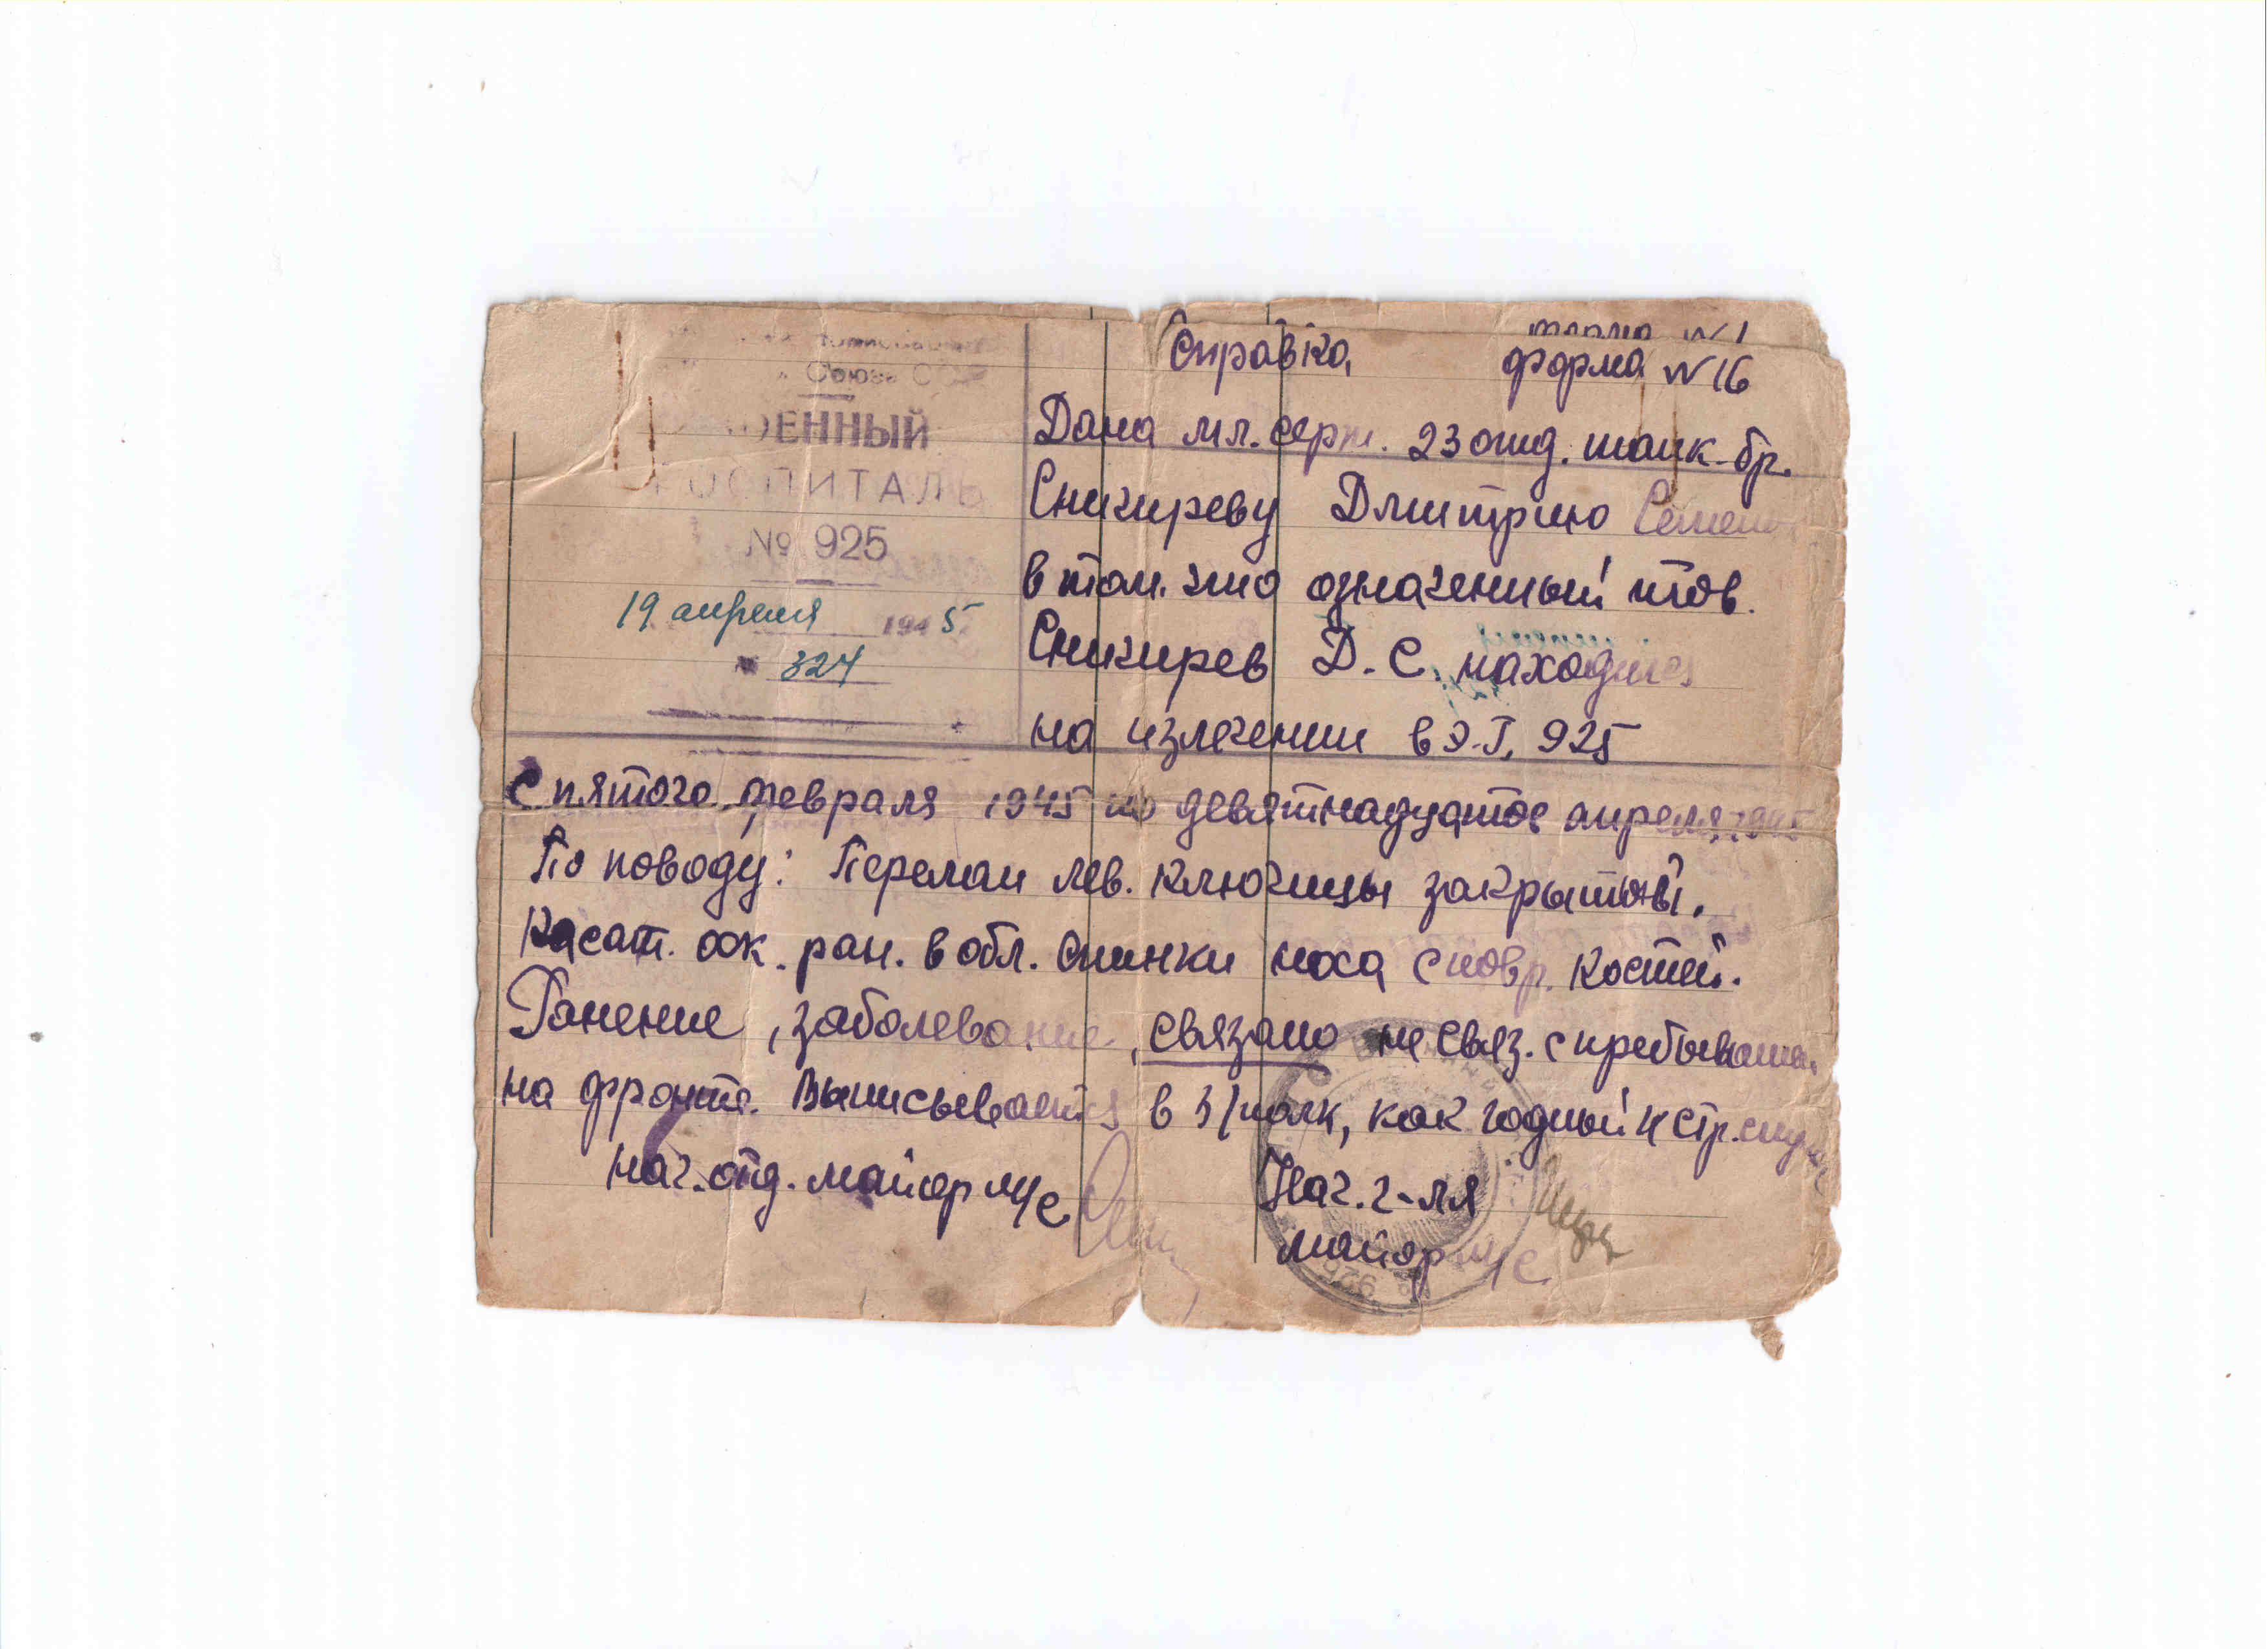 Союза ССР
ВОЕННЫЙ
ГОСПИТАЛЬ
№ 925
19 апреля 1945
№ 324
форма N 1
Справка форма N 16
Дана мл. серж. 23 отд. танк. бр.
Снигиреву Дмитрию Семен
в том. что означенный тов.
Снигирев Д. С. находился
на излечении в Э.Г. 925
С пятого февраля 1945 по девятнадцатое апреля 1945
По поводу: Перелом лев. ключицы закрытый.
Касат. оск. ран. в обл. спинки носа с повр. костей.
Ранение, заболевание, связано не связ. с пребыванием
на фронте. Выписывается в з/полк, как годный к стр. службе
Нач. отд. майор м/с
Нач. г-ля
майор м/с
№ 925